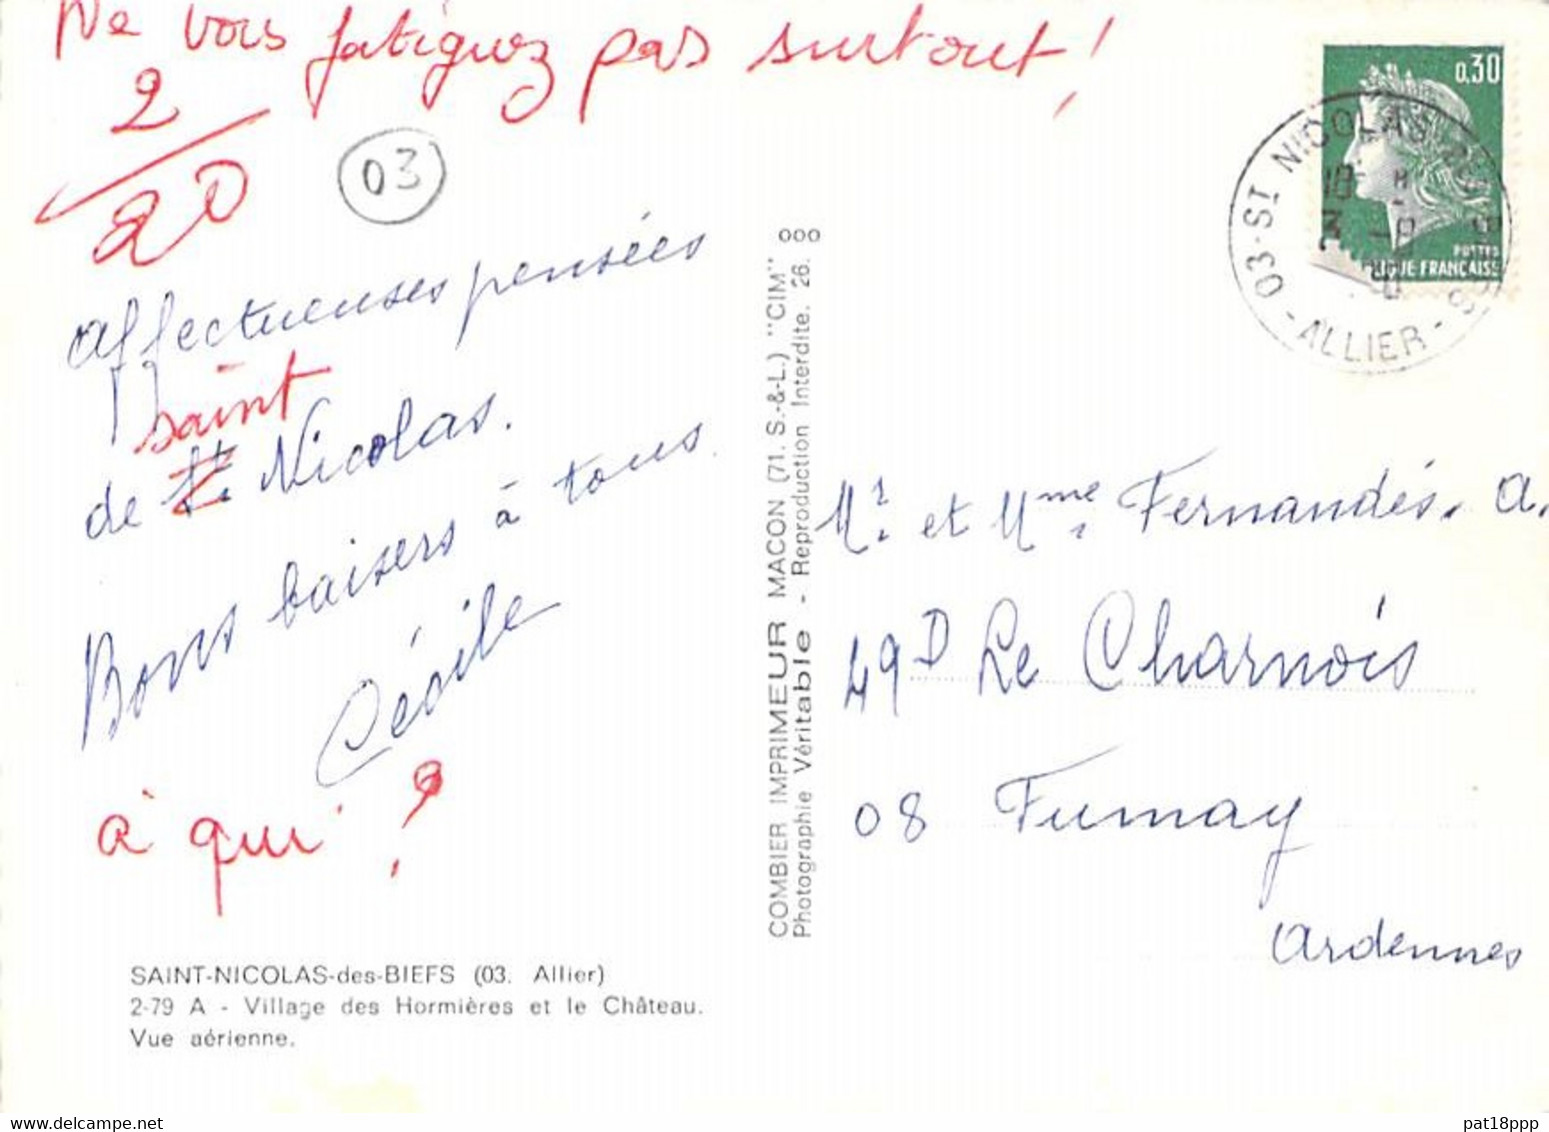 Ne vous fatiguez pas surtout !
2
20
03
affectueuses pensées
saint
de St Nicolas.
Bons baisers à tous.
Cécile
à qui ?
SAINT-NICOLAS-des-BIEFS (03. Allier)
2-79 A - Village des Hormières et le Château.
Vue aérienne.
COMBIER IMPRIMEUR MACON (71. S.-&-L.) "CIM"
Photographie Véritable - Reproduction Interdite. 26. ooo
0,30
POSTES
FRANÇAISE
03-St NICOLAS
- ALLIER -
Mr. et Mme. Fernandés. A.
49D Le Charnois
08 Fumay
Ardennes
delcampe.net
pat18ppp